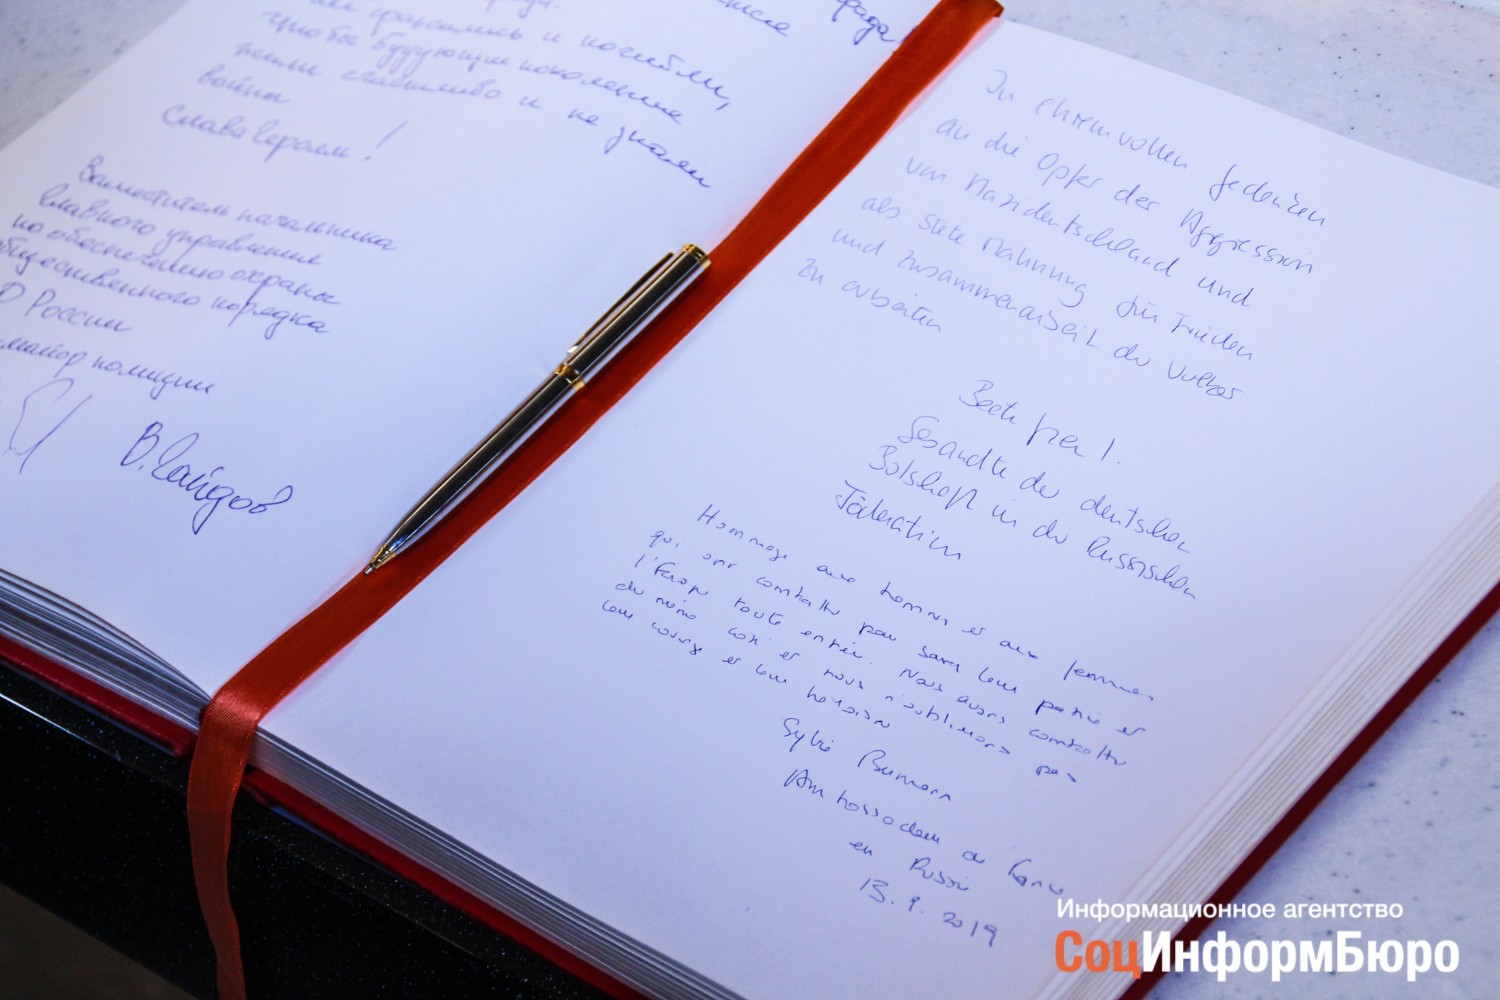 и погибли,
чтобы будующие поколения
жили счастливо и не знали
войны
Слава Героям!
Заместитель начальника
главного управления
по обеспечению охраны
общественного порядка
России
майор полиции
В. Сайдов
In ehrenvollem Gedenken
an die Opfer der Aggression
von Nazideutschland und
als stete Mahnung für Frieden
und Zusammenarbeit der Völker
zu arbeiten
Gesandte der deutschen
Botschaft in der Russischen
Föderation
Hommage aux hommes et aux femmes
qui ont combattu pour sauver leur patrie et
l'Europe toute entière. Nous avons combattu
du même coté et nous n'oublierons pas
leur courage et leur héroïsme
Sylvie Bermann
Ambassadeur de France
en Russie
13. 9. 2019
Информационное агентство
СоцИнформБюро